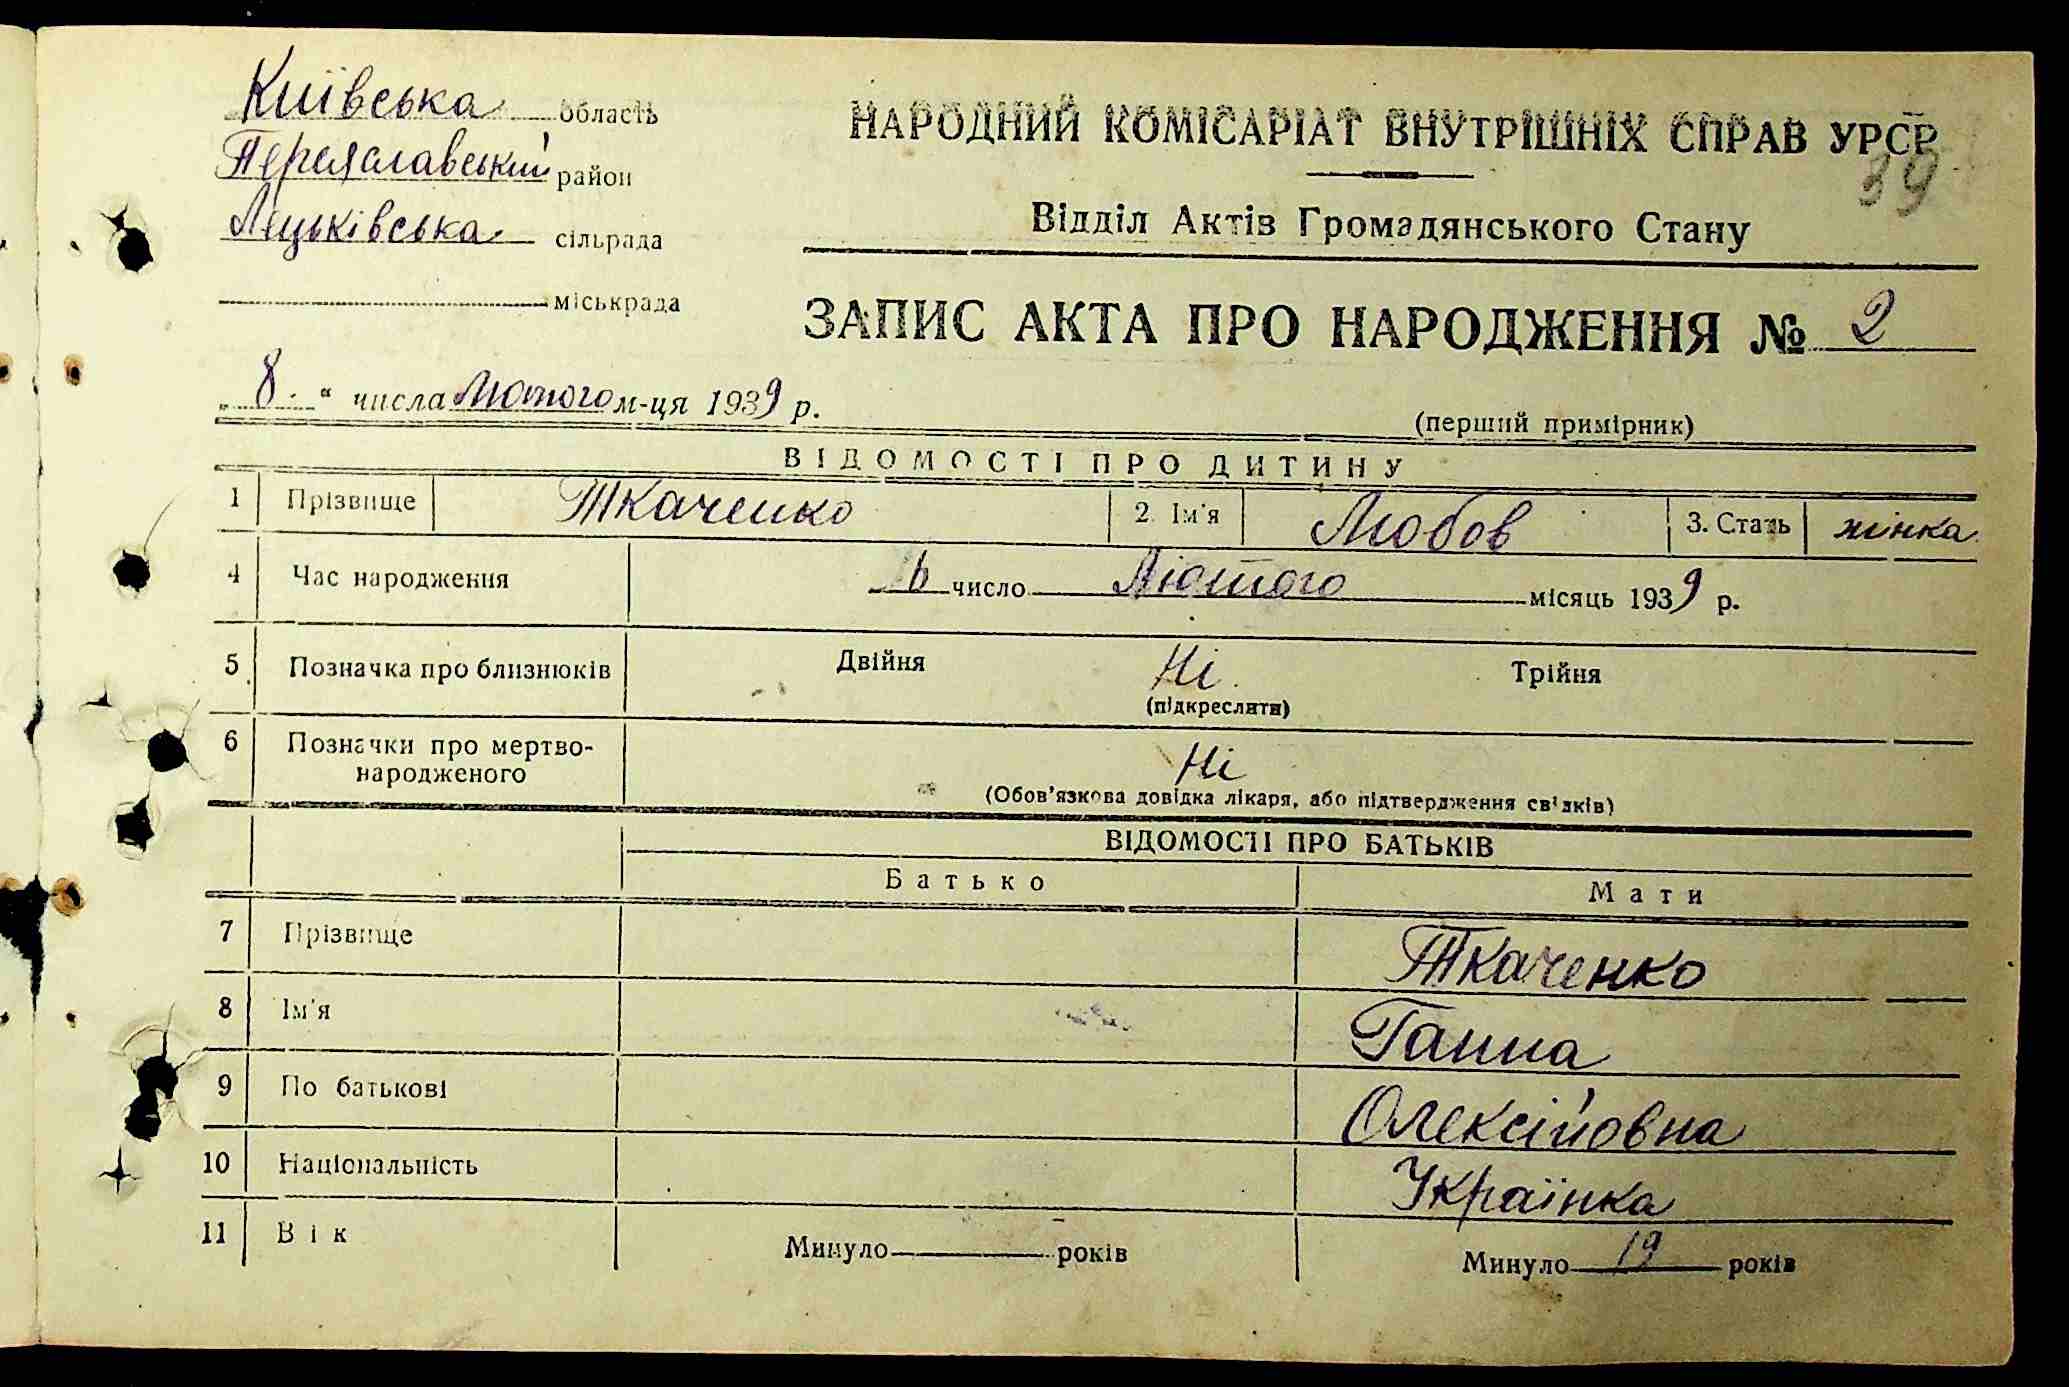 Київська область
Переяславський район
Лецьківська сільрада
міськрада
НАРОДНИЙ КОМІСАРІАТ ВНУТРІШНІХ СПРАВ УРСР
39
Відділ Актів Громадянського Стану
ЗАПИС АКТА ПРО НАРОДЖЕННЯ № 2
„8“ числа Лютого м-ця 1939 р.
(перший примірник)
ВІДОМОСТІ ПРО ДИТИНУ
1 Прізвище Ткаченко 2. Ім'я Любов 3. Стать жінка
4 Час народження 6 число Лютого місяць 1939 р.
5 Позначка про близнюків Двійня Ні Трійня
(підкреслити)
6 Позначки про мертво-
народженого Ні
(Обов'язкова довідка лікаря, або підтвердження свідків)
ВІДОМОСТІ ПРО БАТЬКІВ
Батько Мати
7 Прізвище Ткаченко
8 Ім'я Ганна
9 По батькові Олексійовна
10 Національність Українка
11 Вік Минуло років Минуло 19 років